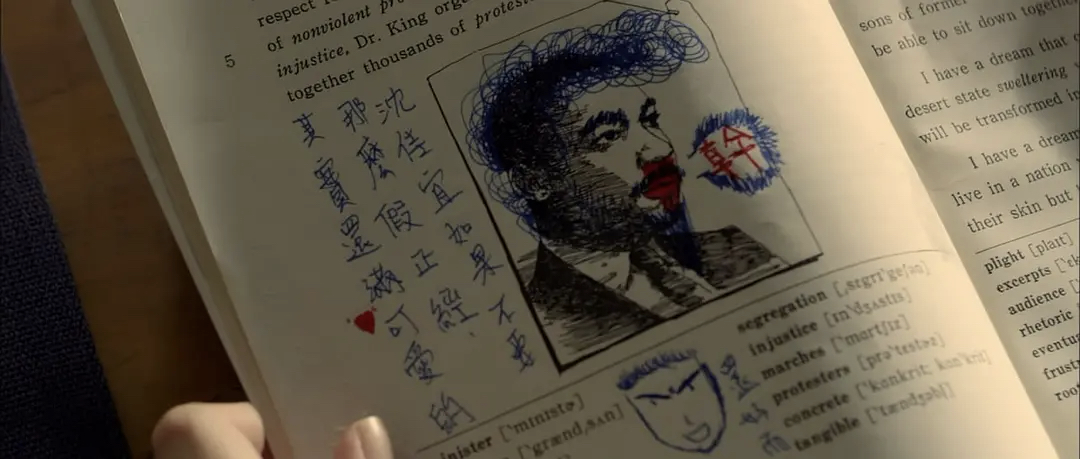 respect
of nonviolent pro
injustice, Dr. King orga
5
together thousands of protest
沈佳宜如果不要
那麼假正經,
其實還滿可愛的
幹
segregation [ˌsɛgrɪˈgeʃən]
injustice [ɪnˈdʒʌstɪs]
marches [ˈmɑrtʃɪz]
protesters [prəˈtɛstɚz]
concrete [ˈkɑnkrit; kɑnˈkrit]
tangible [ˈtændʒəbl̩]
inister [ˈmɪnɪstɚ]
[ˈgrændˌsʌn]
還好而
sons of former
be able to sit down together
I have a dream that o
desert state sweltering
will be transformed in
I have a dream
live in a nation
their skin but
plight [plaɪt]
excerpts
audience
rhetoric
eventu
frust
roo